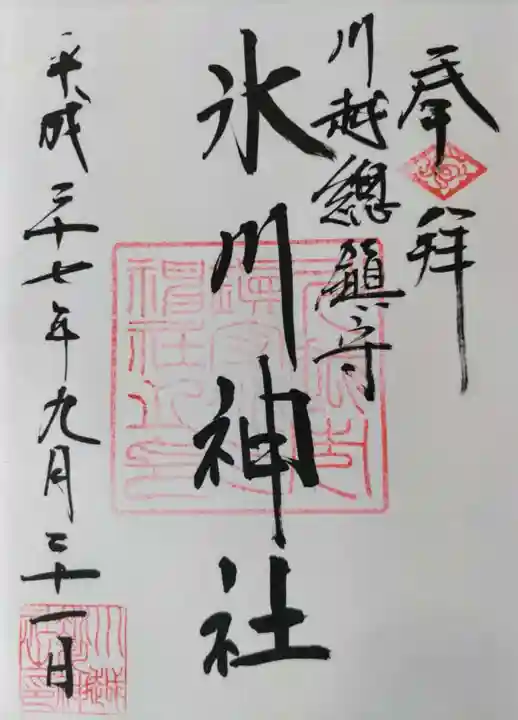 奉拝
川越總鎮守
氷川神社
平成二十七年九月二十一日